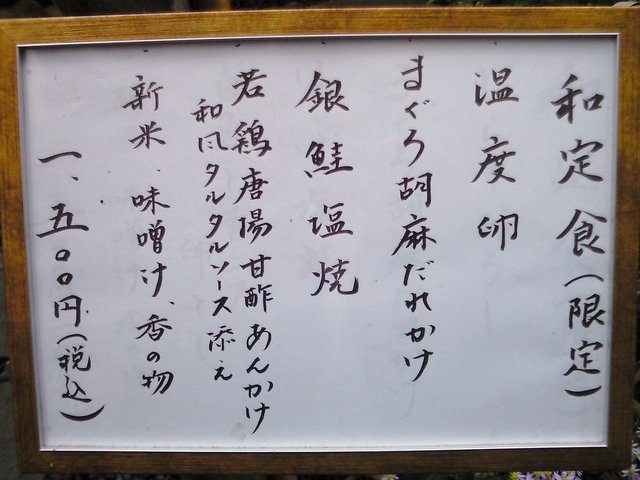 和定食(限定)
温度卵
まぐろ胡麻だれかけ
銀鮭塩焼
若鶏唐揚甘酢あんかけ
和風タルタルソース添え
新米、味噌汁、香の物
一、五〇〇円(税込)